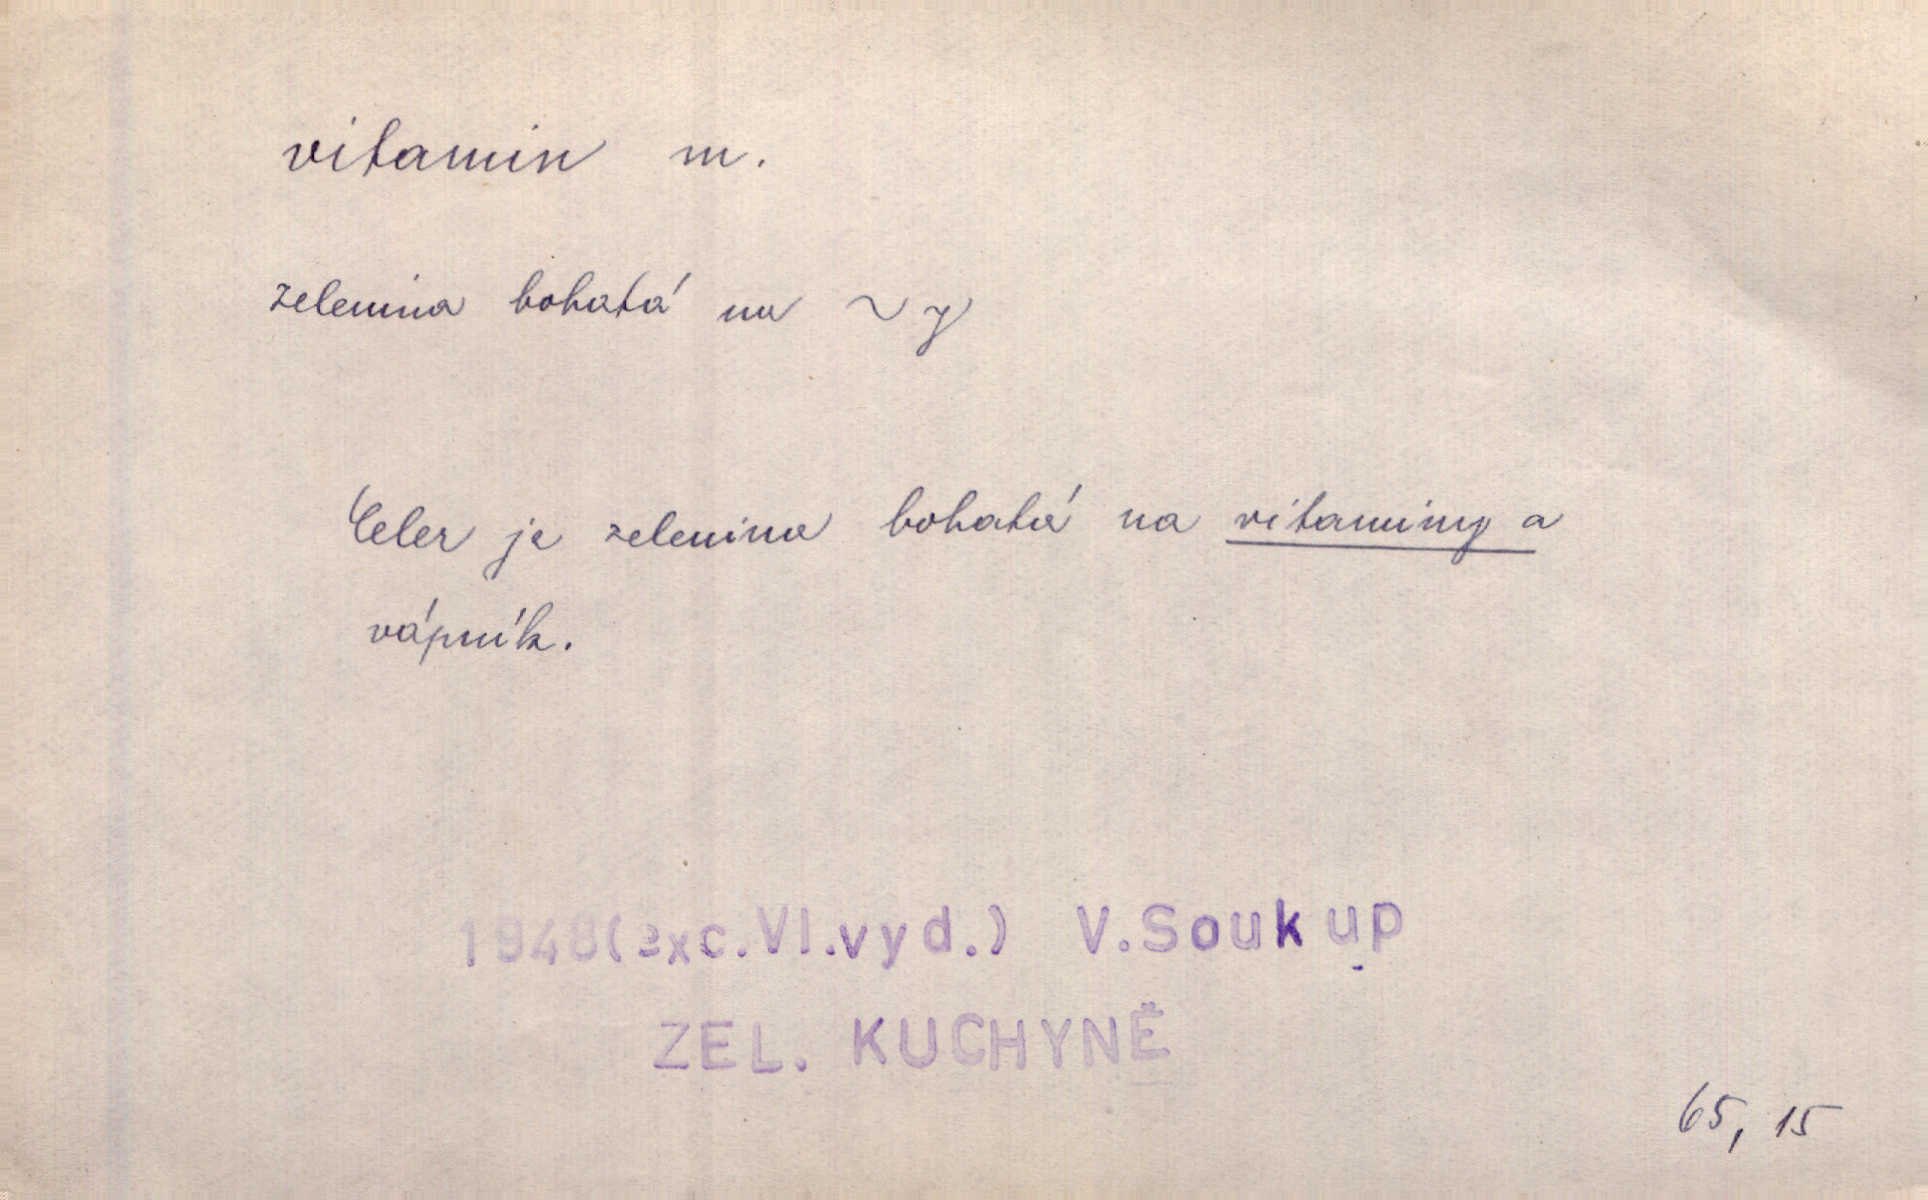 vitamin m.
zelenina bohatá na ~y
Celer je zelenina bohatá na vitaminy a
vápník.
1948(exc.VI.vyd.) V.Soukup
ZEL. KUCHYNĚ
65,15